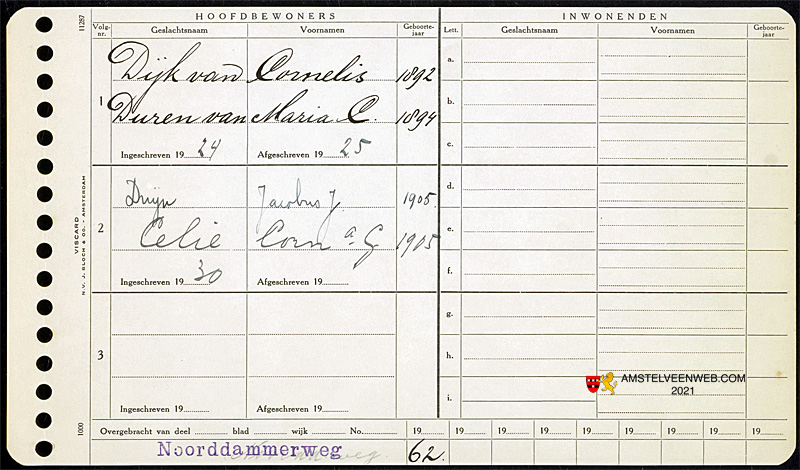 HOOFDBEWONERS
INWONENDEN
11287
Volg-nr.
Geslachtsnaam
Voornamen
Geboorte-jaar
Lett.
Geslachtsnaam
Voornamen
Geboorte-jaar
1
Dijk van Cornelis 1892
Duren van Maria C. 1894
Ingeschreven 1924 Afgeschreven 1925
a.
b.
c.
2
Duyn Jacobus J. 1905.
Celie Corn a G 1905
Ingeschreven 1930 Afgeschreven 19
d.
e.
f.
3
Ingeschreven 19 Afgeschreven 19
g.
h.
i.
VISCARD
N.V. J. BLOCH & CO. - AMSTERDAM
1000
AMSTELVEENWEB.COM
2021
Overgebracht van deel blad wijk No. 19 19 19 19 19 19 19 19 19 19
Noorddammerweg 62.